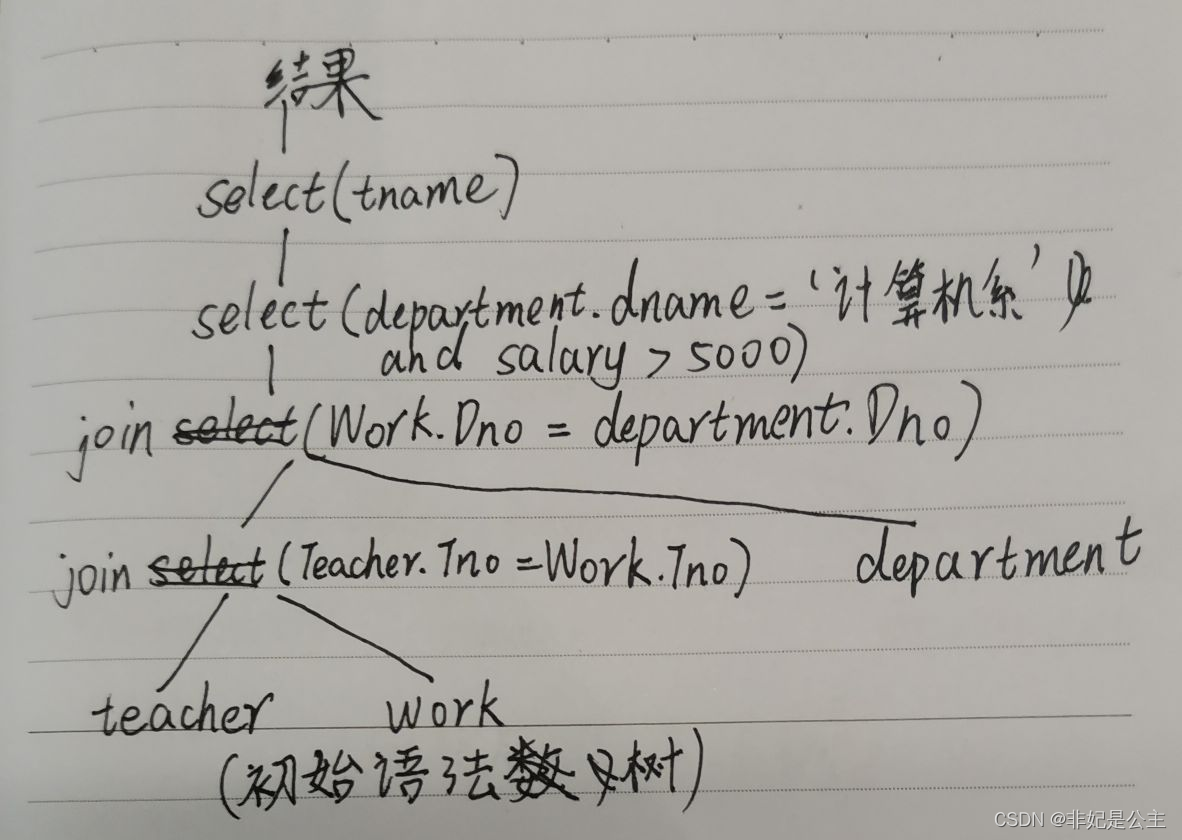 结果
select(tname)
select(department.dname='计算机系'
and salary > 5000)
join select(Work.Dno = department.Dno)
join select(Teacher.Tno=Work.Tno) department
teacher work
(初始语法数树)
CSDN @非妃是公主